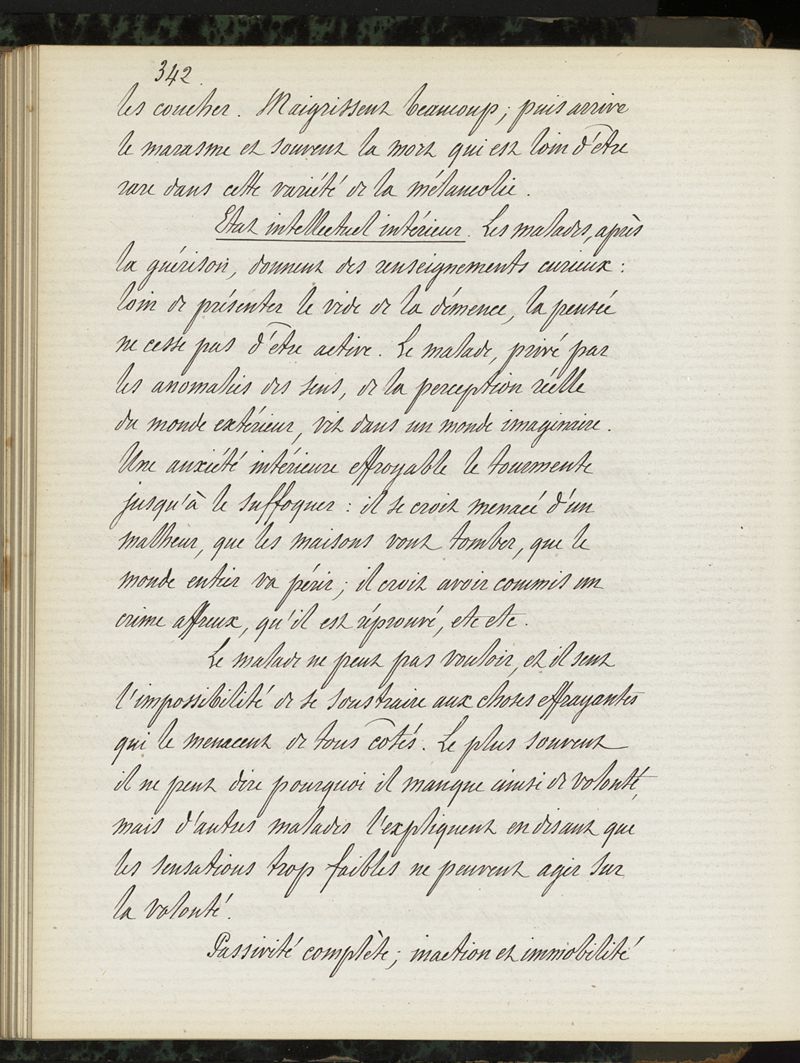 342.
les coucher. Maigrissent beaucoup; puis arrive
le marasme et souvent la mort qui est loin d'être
rare dans cette variété de la mélancolie.
Etat intellectuel intérieur. Les malades, après
la guérison, donnent des renseignements curieux:
loin de présenter le vide de la démence, la pensée
ne cesse pas d'être active. Le malade, privé par
les anomalies des sens, de la perception réelle
du monde extérieur, vit dans un monde imaginaire.
Une anxiété intérieure effroyable le tourmente
jusqu'à le suffoquer: il se croit menacé d'un
malheur, que les maisons vont tomber, que le
monde entier va périr; il croit avoir commis un
crime affreux, qu'il est réprouvé, etc etc.
Le malade ne peut pas vouloir, et il sent
l'impossibilité de se soustraire aux choses effrayantes
qui le menacent de tous côtés. Le plus souvent
il ne peut dire pourquoi il manque ainsi de volonté,
mais d'autres malades l'expliquent en disant que
les sensations trop faibles ne peuvent agir sur
la volonté.
Passivité complète; inaction et immobilité